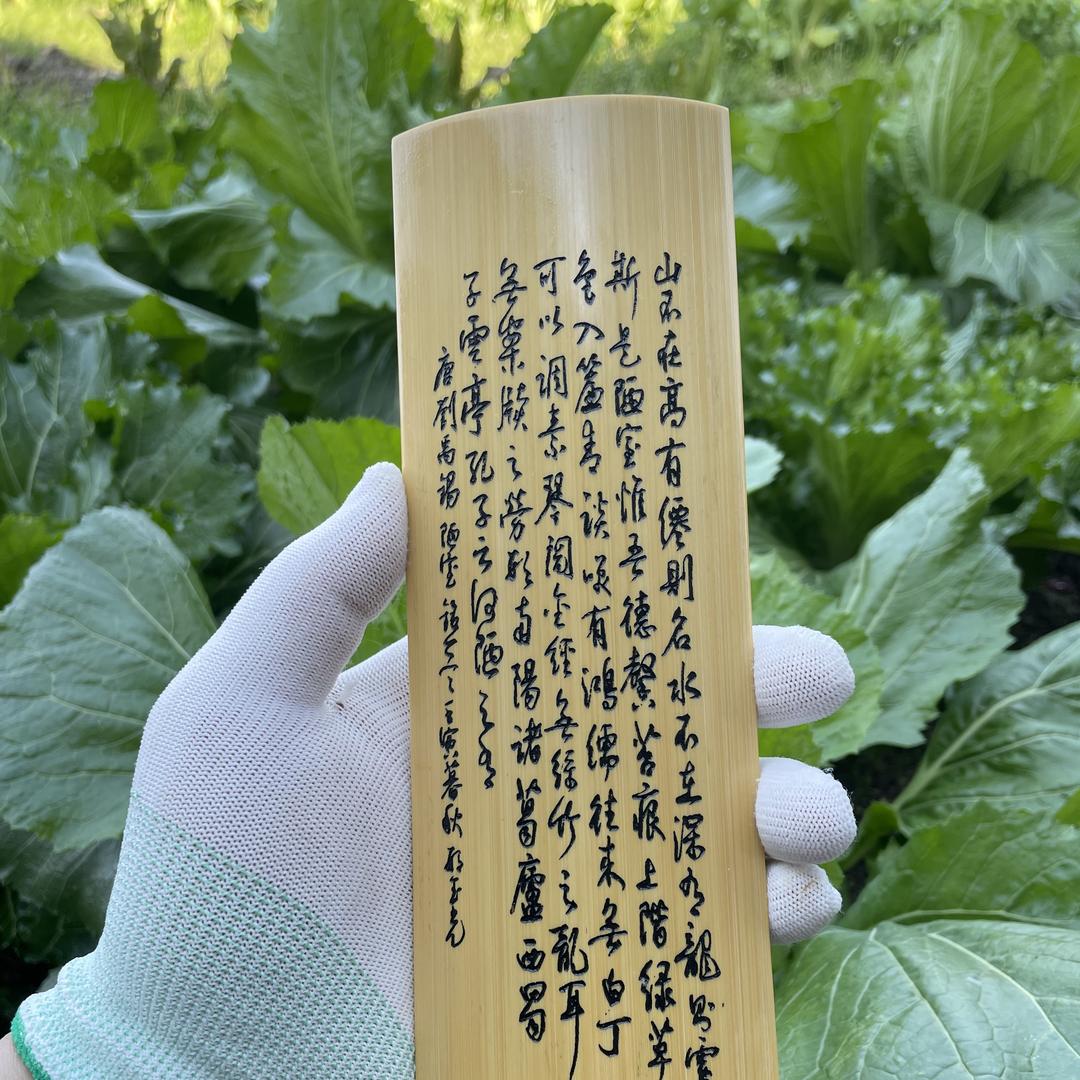 山不在高有僊則名水不在深有龍則靈
斯是陋室惟吾德馨苔痕上階緑草
色入簾青談咲有鴻儒往来無白丁
可以調素琴閲金經無絲竹之亂耳
無案牘之勞形南陽諸葛廬西蜀
子雲亭孔子云何陋之有
唐劉禹錫陋室銘壬寅暮秋